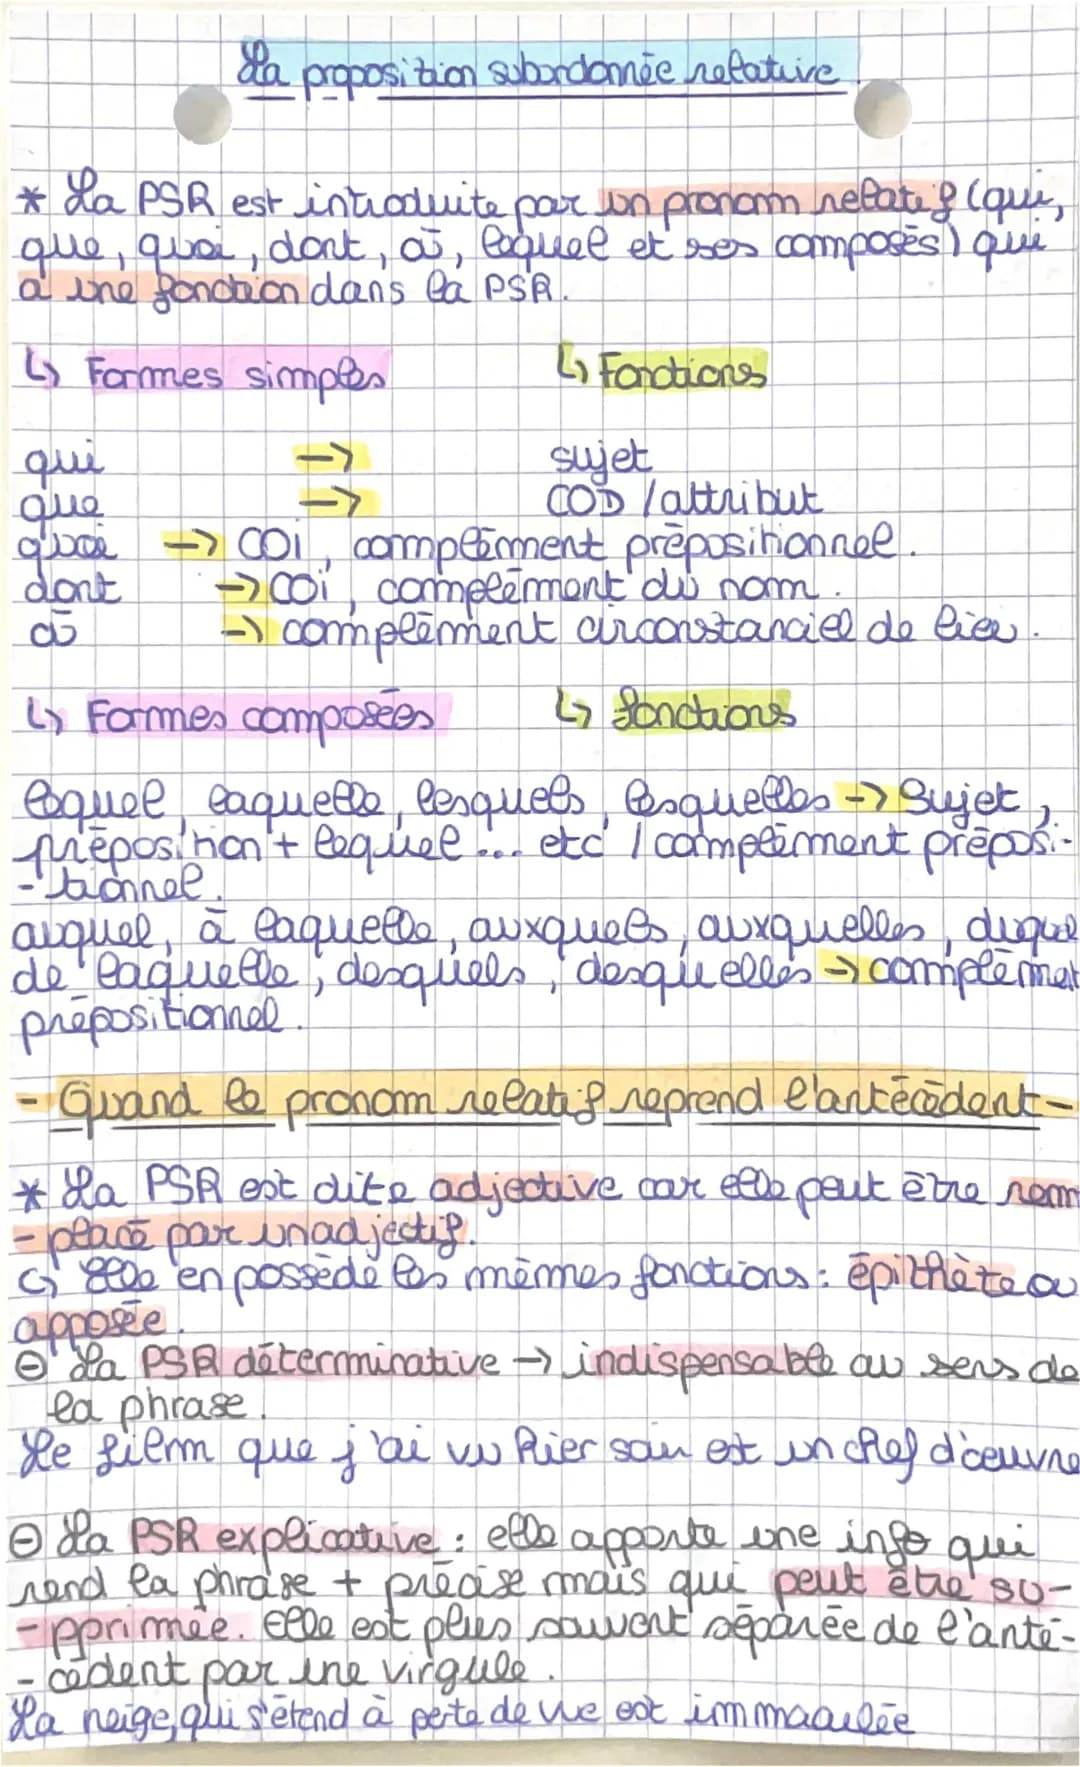 La proposition subordonnée relative
* La PSR est introduite par un pronom relatif (qui,
que, quoi, dont, où, lequel et ses composés) qui
a une fonction dans la PSR.
↳ Formes simples ↳ Fonctions
qui → sujet
que → COD / attribut
quoi → COI, complément prépositionnel.
dont → COI, complément du nom.
où → complément circonstanciel de lieu.
↳ Formes composées ↳ fonctions
lequel, laquelle, lesquels, lesquelles → Sujet,
préposition + lequel ... etc / complément préposi-
-tionnel.
auquel, à laquelle, auxquels, auxquelles, duquel
de laquelle, desquels, desquelles → complément
prépositionnel.
- Quand le pronom relatif reprend l'antécédent -
* La PSR est dite adjective car elle peut être rem
-placé par un adjectif.
↳ Elle en possède les mêmes fonctions : épithète ou
apposée.
⊖ La PSR déterminative → indispensable au sens de
la phrase.
Le film que j'ai vu hier soir est un chef d'œuvre
⊖ La PSR explicative : elle apporte une info qui
rend la phrase + précise mais qui peut être su-
-pprimée. Elle est plus souvent séparée de l'anté-
-cédent par une virgule.
La neige, qui s'étend à perte de vue est immaculée